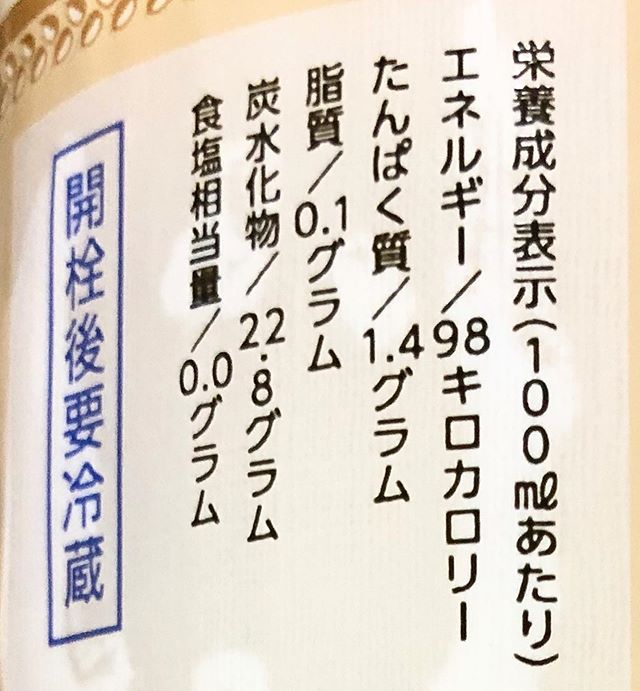 栄養成分表示(100㎖あたり)
エネルギー/98キロカロリー
たんぱく質/1.4グラム
脂質/0.1グラム
炭水化物/22.8グラム
食塩相当量/0.0グラム
開栓後要冷蔵